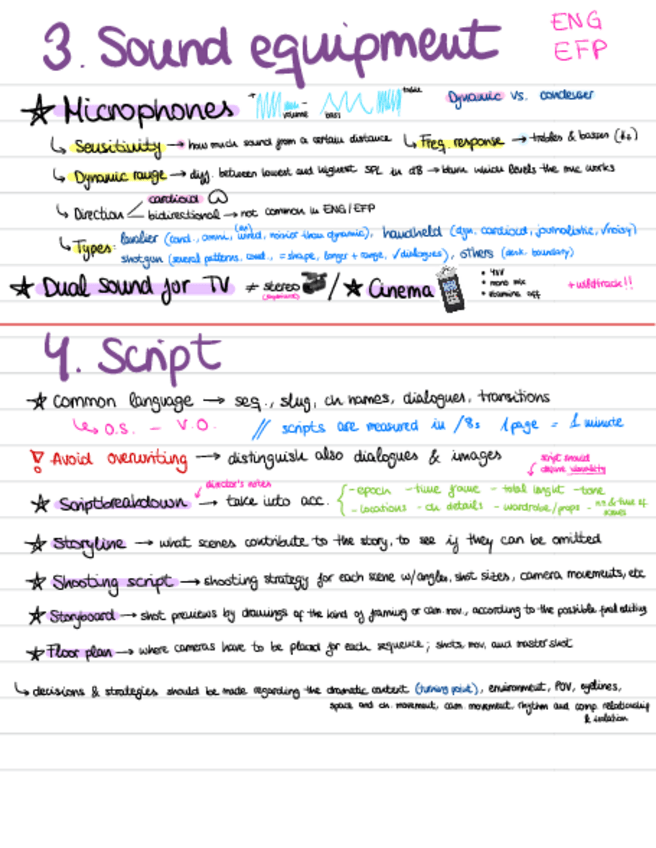 3. Sound equipment
ENG
EFP
★ Microphones
volume
bass
treble
Dynamic vs. condenser
↳ Sensitivity → how much sound from a certain distance
↳ Freq. response → trebles & basses (Hz)
↳ Dynamic range → diff. between lowest and highest SPL in dB → blurn which levels the mic works
↳ Direction
cardioid
bidirectional → not common in ENG/EFP
↳ Types: lavalier (cond., omni, wind, noisier than dynamic), handheld (dyn. cardioid, journalistic, √noisy)
shotgun (several patterns, cond., = shape, longer + range, √dialogues), others (desk boundary)
★ Dual sound for TV ≠ stereo / ★ Cinema
• 48V
• mono mix
• +wildtrack!!
4. Script
★ Common language → seq., slug, ch names, dialogues, transitions
↳ O.S. - V.O. // scripts are measured in /8s 1 page = 1 minute
! Avoid overwriting → distinguish also dialogues & images
script should define visuality
director's notes
★ Scriptbreakdown → take into acc.
- epoch - time frame - total lenght - tone
- locations - ch details - wardrobe/props - nº & time of scenes
★ Storyline → what scenes contribute to the story, to see if they can be omitted
★ Shooting script → shooting strategy for each scene w/angles, shot sizes, camera movements, etc
★ Storyboard → shot previews by drawings of the kind of framing or cam mov., according to the possible final editing
★ Floor plan → where cameras have to be placed for each sequence; shots, mov, and master shot
↳ decisions & strategies should be made regarding the dramatic context (turning point), environment, POV, eyelines,
space and ch. movement, cam. movement, rhythm and comp. relationship
& isolation